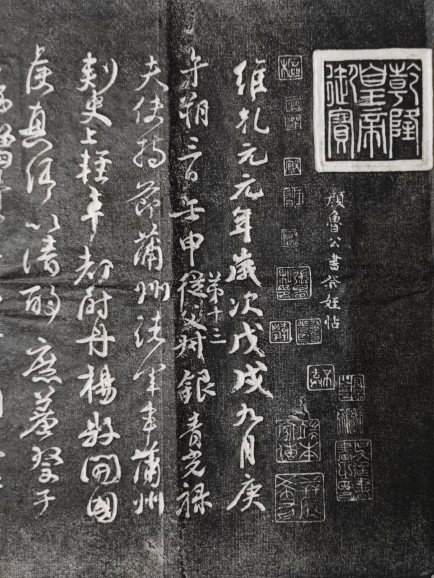 乾隆
皇帝
御寶
顏魯公書祭姪帖
維乾元元年歲次戊戌九月庚
午朔三日壬申第十三從父叔銀青光祿
夫使持節蒲州諸軍事蒲州
刺史上輕車都尉丹楊縣開國
侯真卿以清酌庶羞祭于